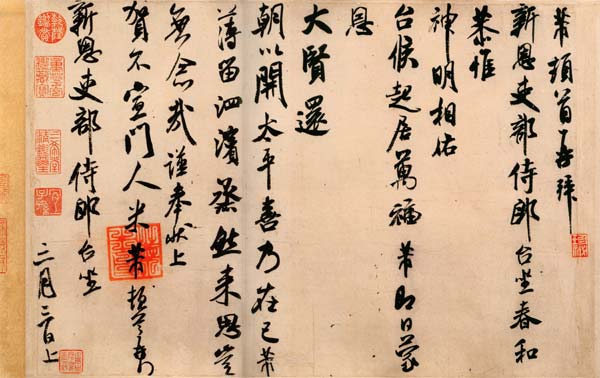 芾頓首再拜
新恩吏部侍郎台坐春和
恭惟
神明相佑
台候起居萬福芾即日蒙
恩
大賢還
朝以開太平喜乃在己芾
薄留泗濱蒸然来思豈
無念哉謹奉狀上
賀不宣門人米芾頓首再拜
新恩吏部侍郎台坐
三月三日上